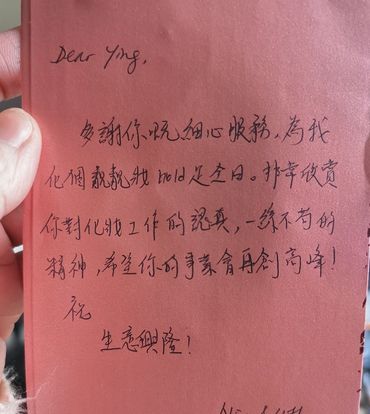 Dear Ying,
多謝你嘅細心服務，為我
化個靚靚妝hold足全日。非常欣賞
你對化妝工作的認真，一絲不苟的
精神，希望你的事業會再創高峰！
祝
生意興隆！